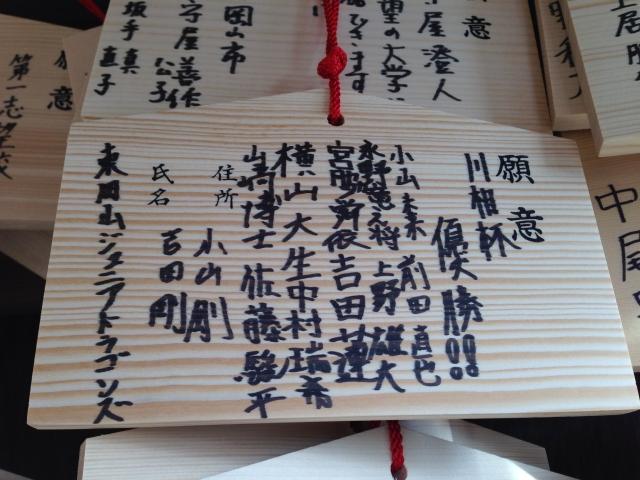 願意
川相杯
優勝!!
小山未来 前田直也
永野竜之将 上野雄大
宮脇芽依 吉田蓮
横山大生 中村瑞希
山崎博士 佐藤駿平
住所
小山剛
氏名
吉田剛
東岡山ジュニアドラゴンズ
願意
屋澄人
望の大学に
岡山市
守屋善作
公子
坂手真
直子
意
第一志望
中尾